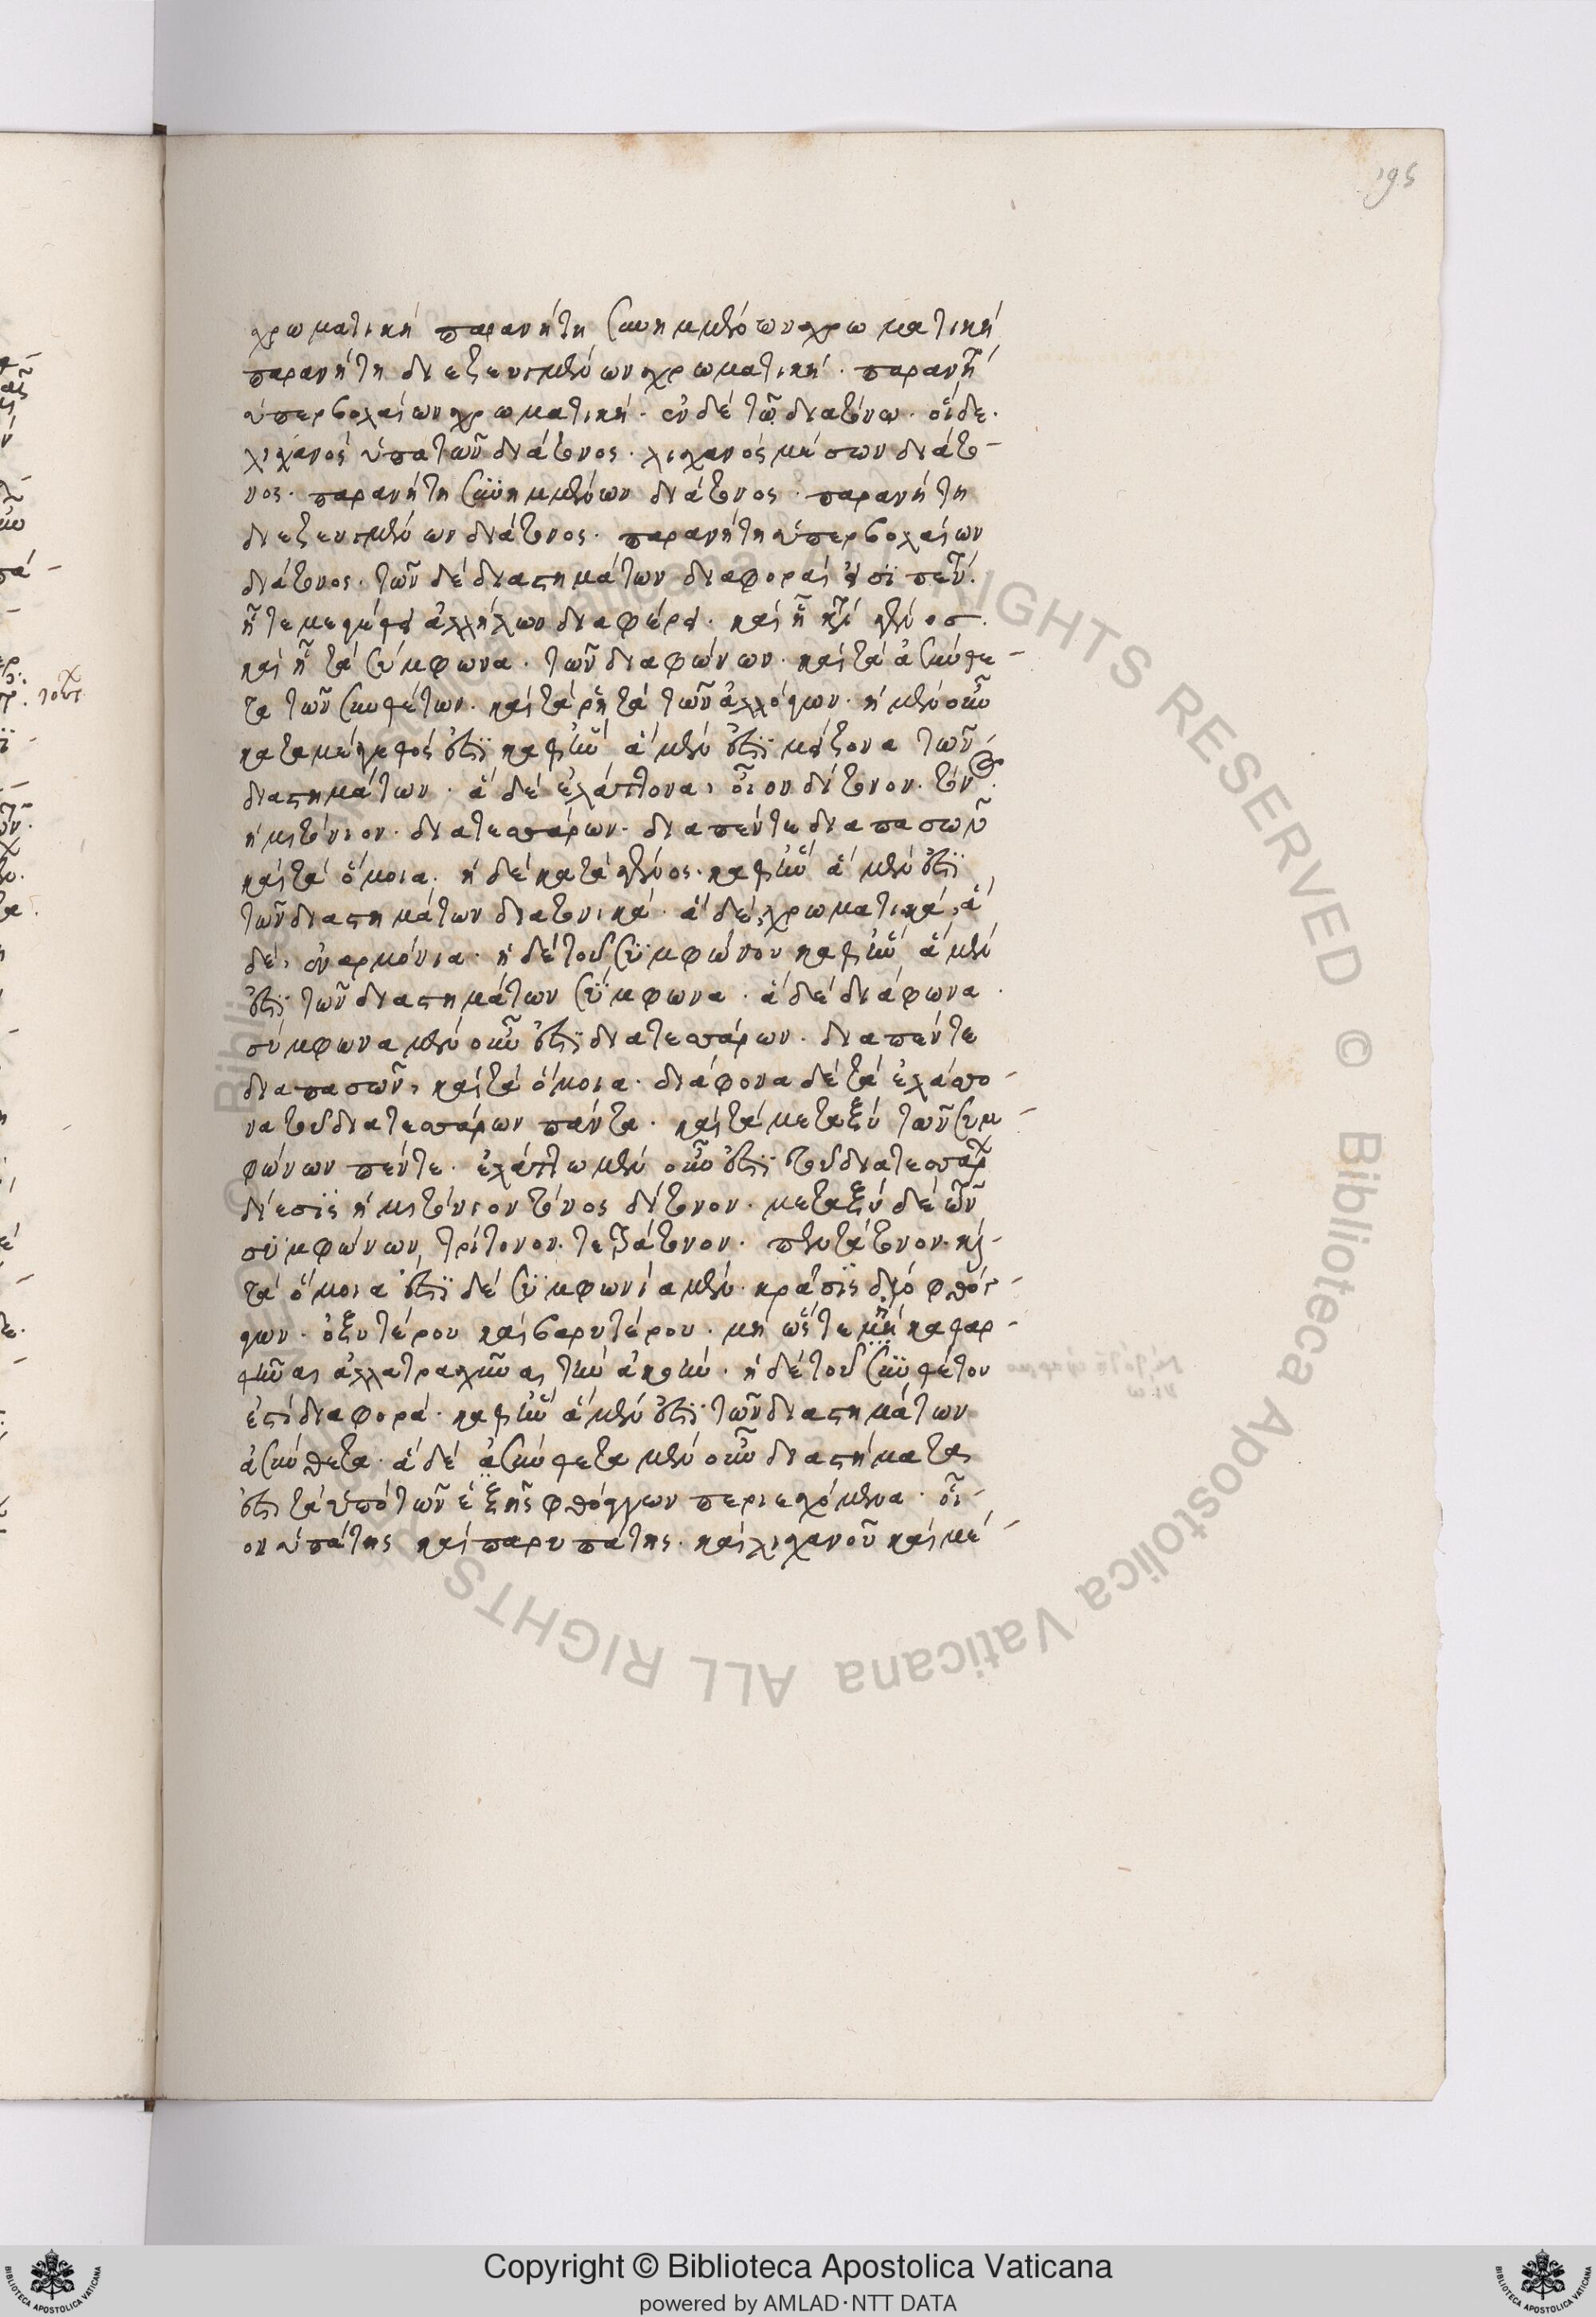 195
χρωματική παρανήτη συνημμένων χρωματική
παρανήτη διεζευγμένων χρωματική· παρανήτη
ὑπερβολαίων χρωματική· ἐν δὲ τῷ διατόνω· οἵδε·
λιχανὸς ὑπατῶν διάτονος· λιχανὸς μέσων διάτο-
νος· παρανήτη συνημμένων διάτονος· παρανήτη
διεζευγμένων διάτονος· παρανήτη ὑπερβολαίων
διάτονος· τῶν δὲ διαστημάτων διαφοραί εἰσι πέντε·
ᾗ τε μεγέθει ἀλλήλων διαφέρει· καὶ ᾗ κατὰ γένος·
καὶ ᾗ τὰ σύμφωνα· τῶν διαφώνων· καὶ τὰ ἀσύνθε-
τα τῶν συνθέτων· καὶ τὰ ῥητὰ τῶν ἀλλόγων· ἡ μὲν οὖν
κατὰ μέγεθός ἐστι καθ' ἣν ἃ μὲν ἐστι μείζονα τῶν
διαστημάτων· ἃ δὲ ἐλάττονα, οἷον δίτονον· τόνος·
ἡμιτόνιον· διατεσσάρων· διαπέντε διαπασῶν
καὶ τὰ ὅμοια· ἡ δὲ κατὰ γένος· καθ' ἣν ἃ μὲν ἐστι
τῶν διαστημάτων διατονικά· ἃ δὲ, χρωματικά, ἃ
δὲ, ἐναρμόνια· ἡ δὲ τοῦ συμφώνου καθ' ἣν ἃ μὲν
ἐστι τῶν διαστημάτων σύμφωνα· ἃ δὲ διάφωνα·
σύμφωνα μὲν οὖν ἐστι διατεσσάρων· διαπέντε
διαπασῶν, καὶ τὰ ὅμοια· διάφονα δὲ τὰ ἐλάσσο-
να τοῦ διατεσσάρων πάντα· καὶ τὰ μεταξὺ τῶν συμ-
φώνων πέντε· ἐλάττω μὲν οὖν ἐστι τοῦ διατεσσάρων
δίεσις ἡμιτόνιον τόνος δίτονον· μεταξὺ δὲ τῶν
συμφώνων, τρίτονον· τετράτονον· πεντάτονον· καὶ
τὰ ὅμοια ἐστι δὲ συμφωνία μὲν· κρᾶσις δύο φθόγ-
γων· ὀξυτέρου καὶ βαρυτέρου· μὴ ὥστε μὴ καθαρ-
θῆναι ἀλλὰ τραχῦναι τὴν ἀκοήν· ἡ δὲ τοῦ συνθέτου
ἐστὶ διαφορά· καθ' ἣν ἃ μὲν ἐστι τῶν διαστημάτων
ἀσύνθετα· ἃ δὲ ἀσύνθετα μὲν οὖν διαστήματα
ἐστι τὰ ὑπὸ τῶν ἑξῆς φθόγγων περιεχόμενα· οἷ-
ον ὑπάτης καὶ παρυπάτης· καὶ λιχανοῦ καὶ μέ-
© Biblioteca Apostolica Vaticana ALL RIGHTS RESERVED
Copyright © Biblioteca Apostolica Vaticana
powered by AMLAD·NTT DATA